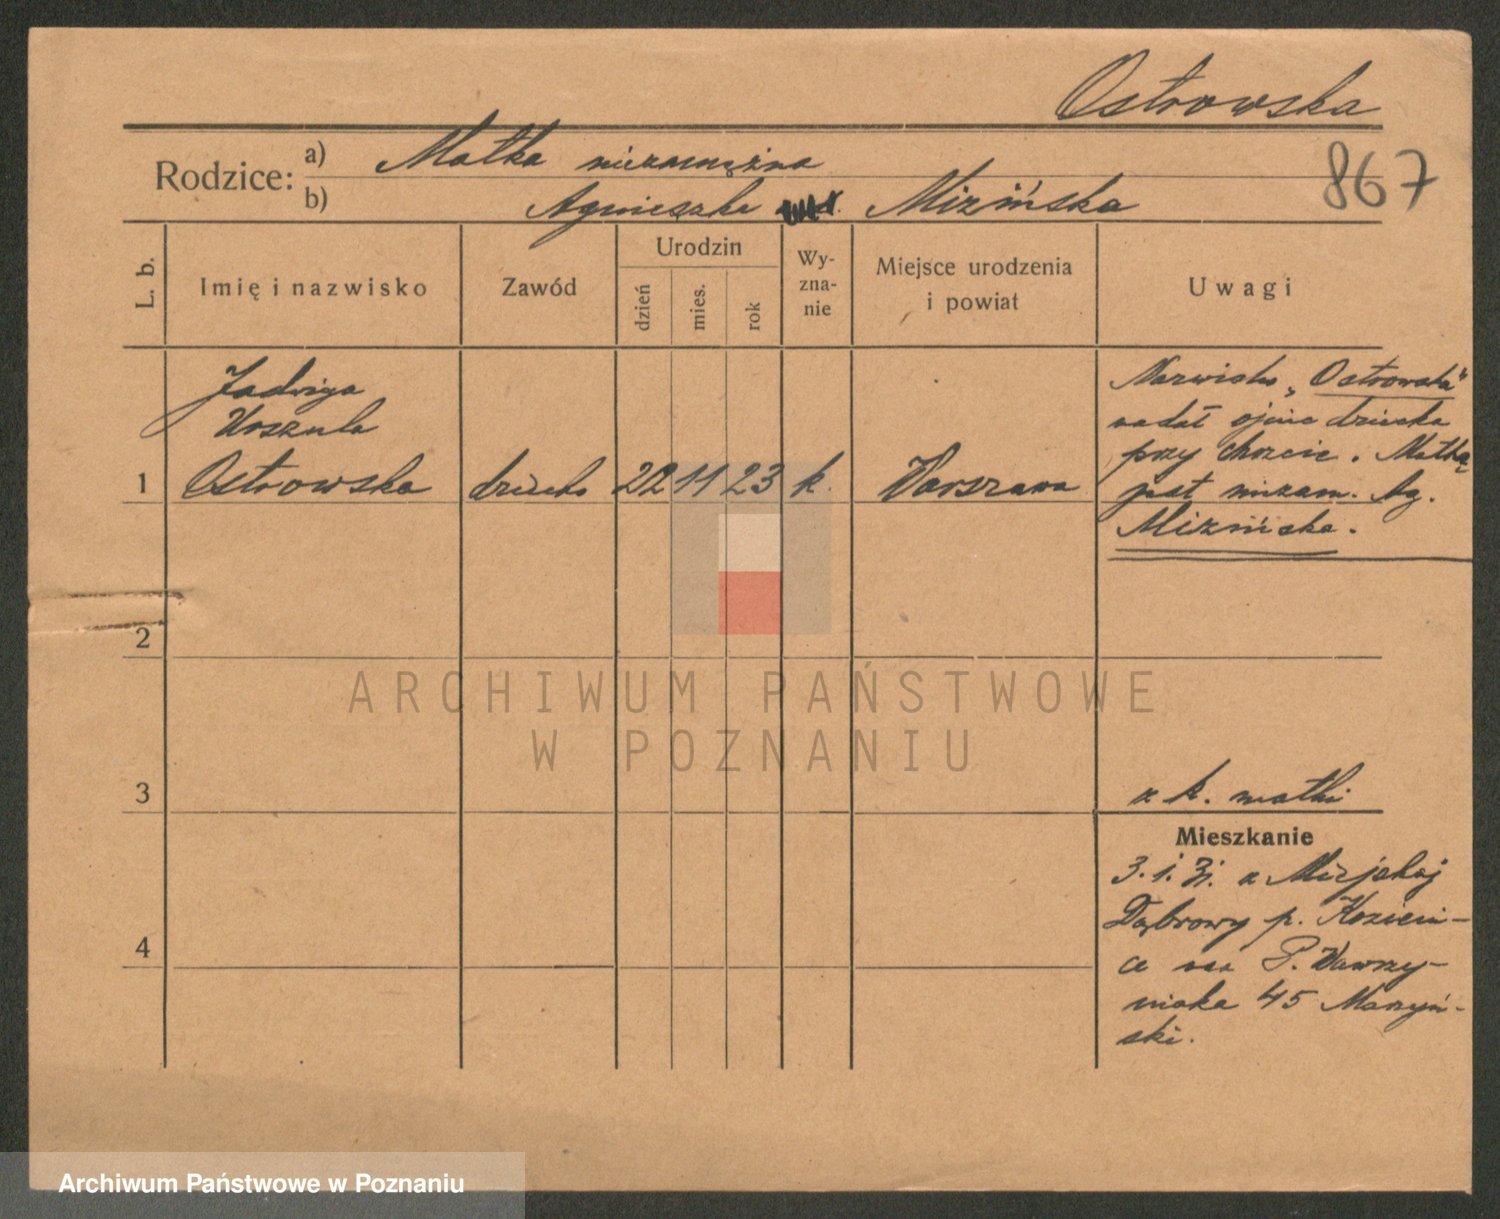 Ostrowska
867
Rodzice: a) Matka niezamężna
b) Agnieszka Mizińska
L. b.
Imię i nazwisko
Zawód
Urodzin
dzień
mies.
rok
Wy-
zna-
nie
Miejsce urodzenia
i powiat
Uwagi
Jadwiga
Urszula
1 Ostrowska dziecko 22 11 23 k. Warszawa
Nazwisko „Ostrowska"
nadał ojciec dziecka
przy chrzcie. Matką
jest niezam. Ag.
Mizińska.
2
3
z k. matki
Mieszkanie
3.1.31. z Miejskiej
Dąbrowy p. Kozieni-
ce na P. Wawrzy-
niaka 45 Marzyń-
ski.
4
ARCHIWUM PAŃSTWOWE
W POZNANIU
Archiwum Państwowe w Poznaniu